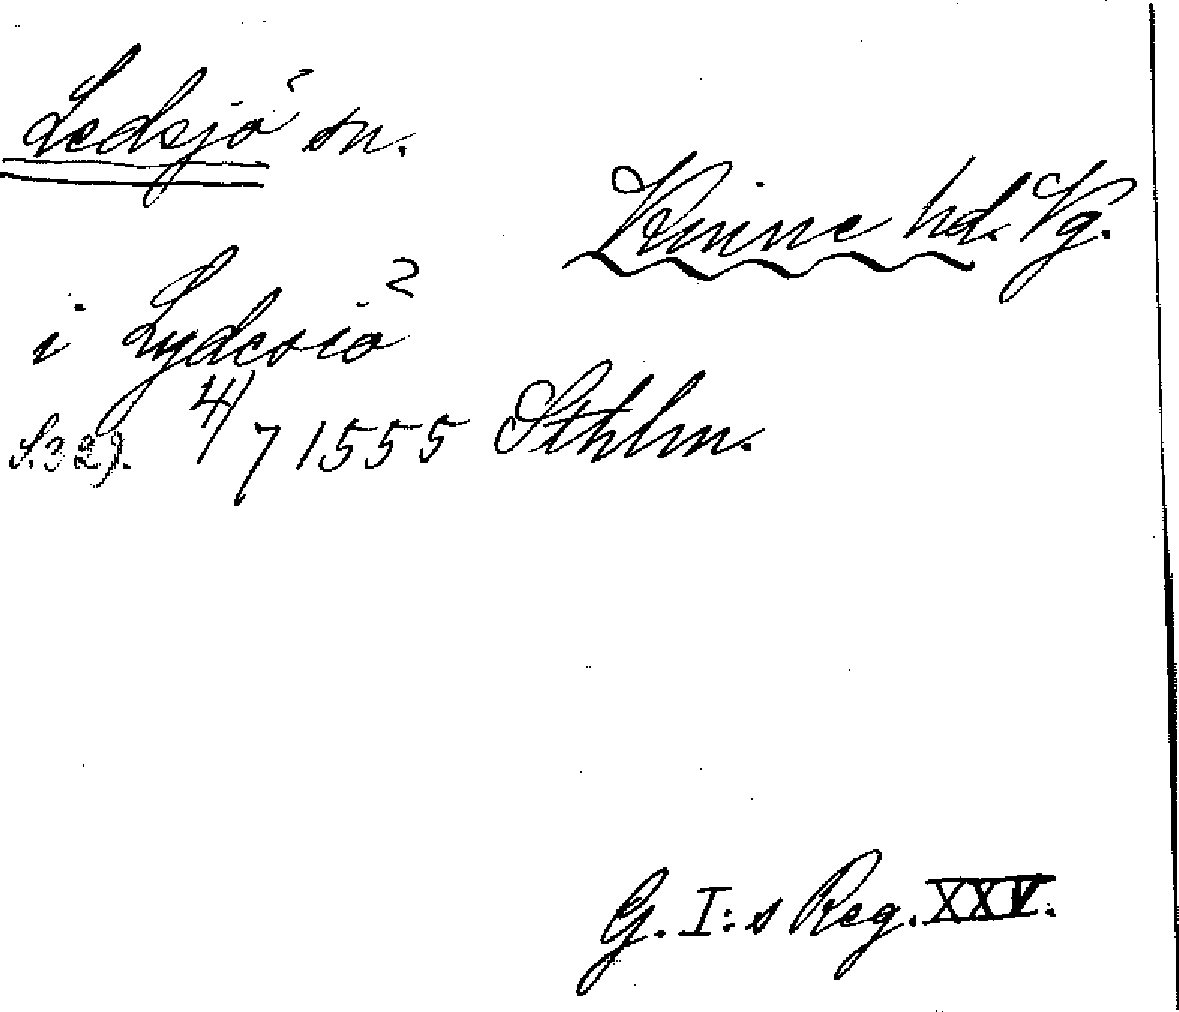 Ledsjö sn.
Kinne hd. Vg.
i Lydesiö
S.329. 4/7 1555 Sthlm.
G. I:s Reg. XXV.